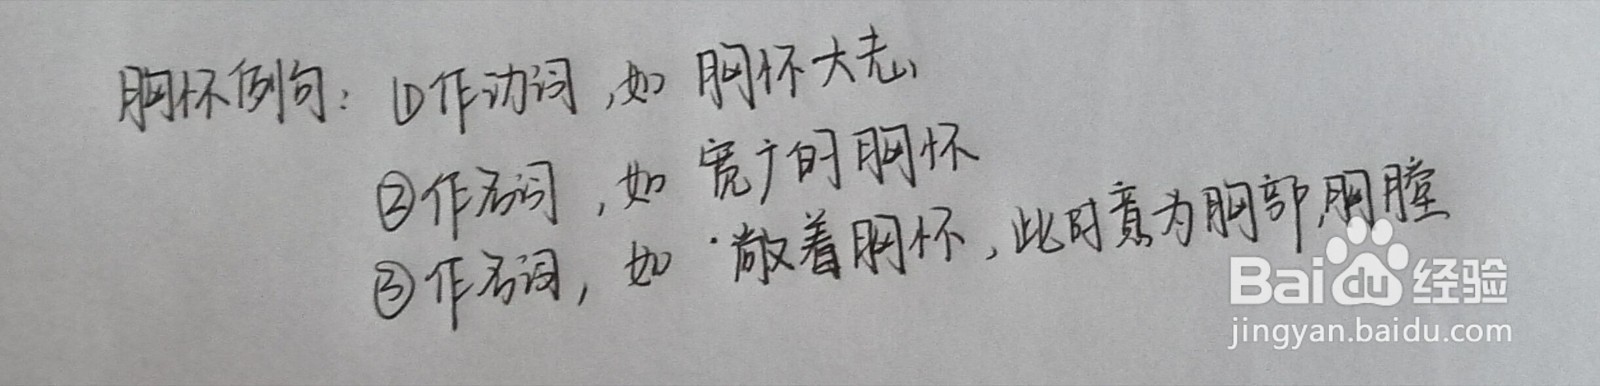 胸怀例句：①作动词，如 胸怀大志、
②作名词，如 宽广的胸怀
③作名词，如 敞着胸怀，此时意为胸部、胸膛
Baidu经验
jingyan.baidu.com